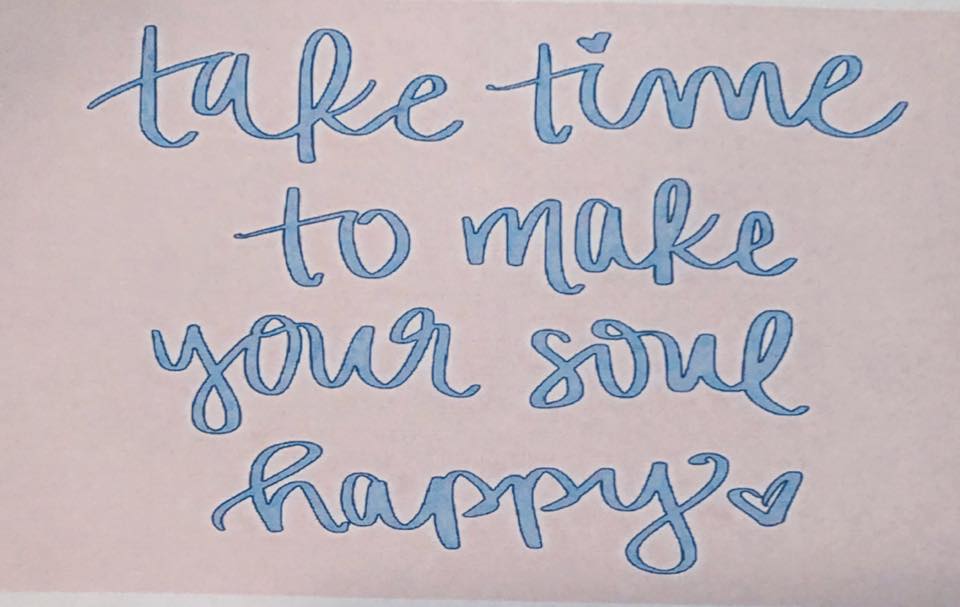 take time
to make
your soul
happy